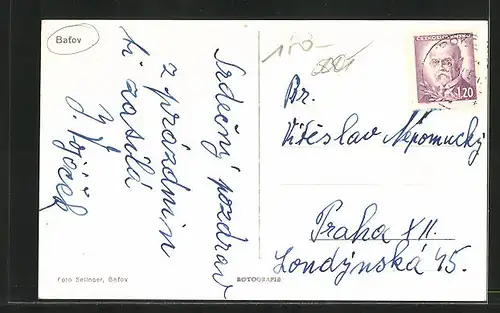 Baťov
Srdečný pozdrav
z prázdnin
ti zasílá
J.
Foto Selinger, Baťov
FOTOGRAFIE
150-
ČESKOSLOVENSKO
1.20
Br.
Vítěslav Nepomucký
Praha XII.
Londýnská 45.